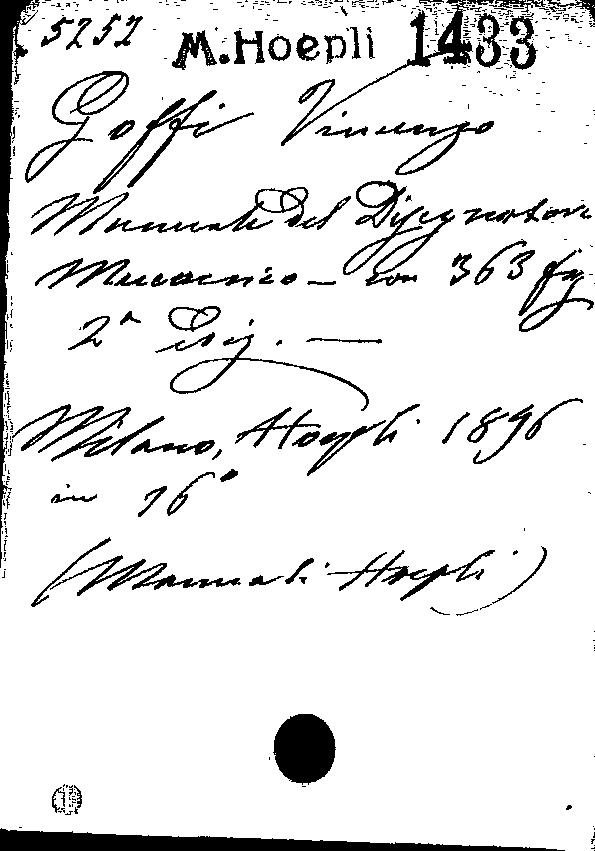 5252 M.Hoepli 1433
Goffi Vincenzo
Manuale del Disegnatore
Meccanico — con 363 fig
2ª Ediz. —
Milano, Hoepli 1896
in 16°
(Manuali Hoepli)